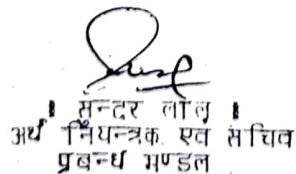 । सुन्दर लाल ।
अर्थ नियन्त्रक एवं सचिव
प्रबन्ध मण्डल